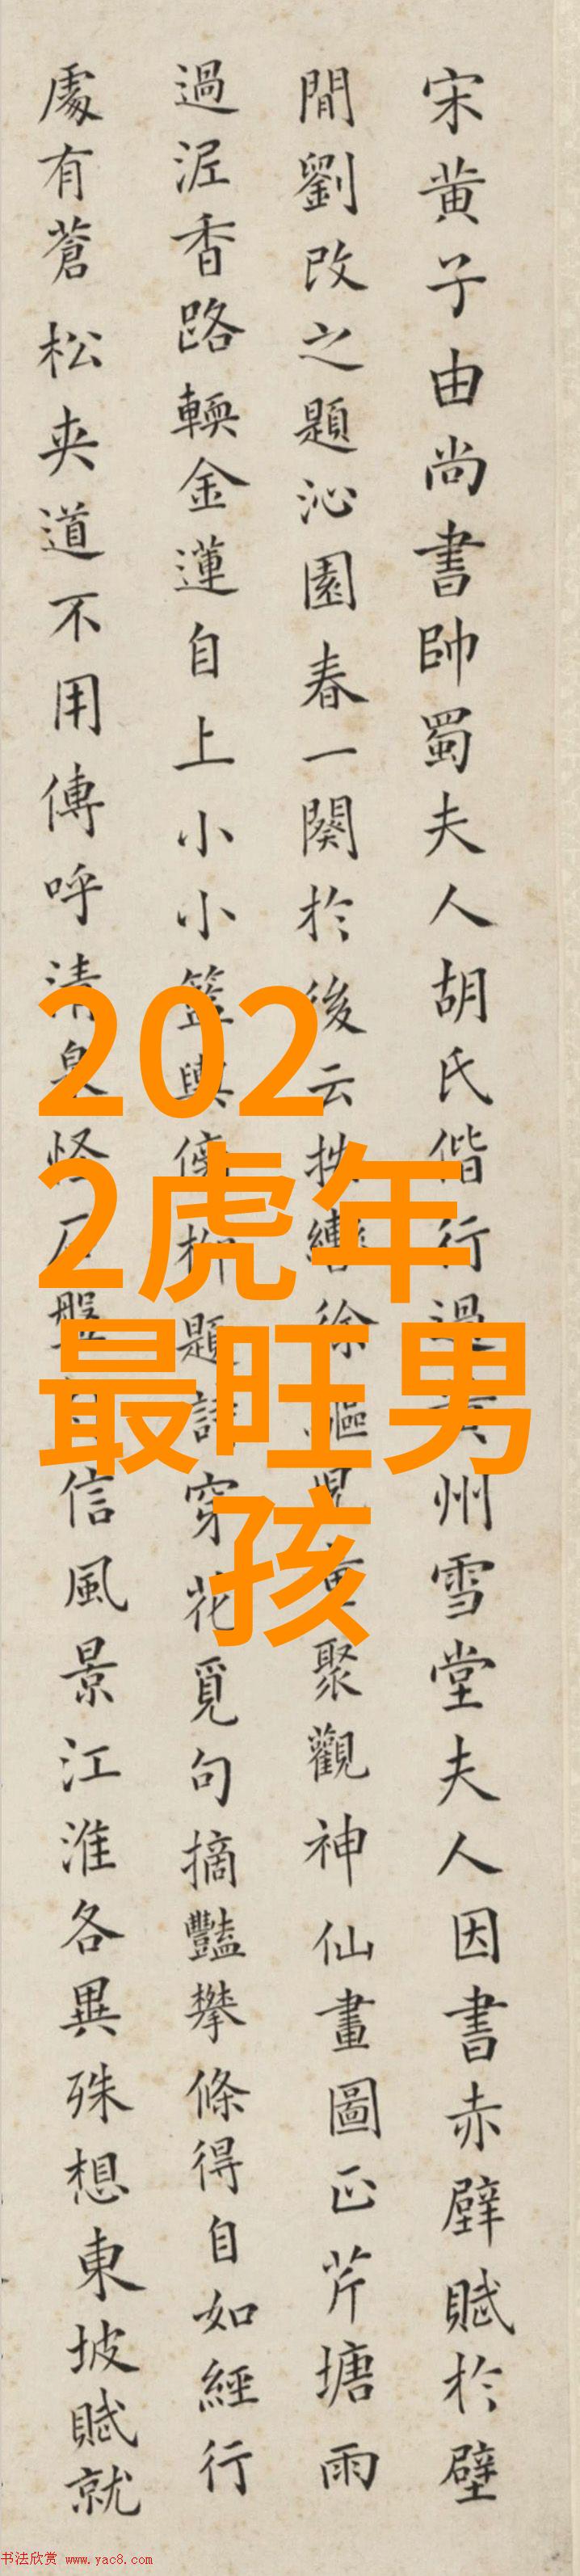 宋黄子由尚書帥蜀夫人胡氏偕行過黄州雪堂夫人因書赤壁賦於壁
間劉改之題沁園春一闋於後云按轡徐驅兒童聚觀神仙畫圖正芹塘雨
過泥香路輭金蓮自上小小籃輿傍柳題詩穿花覓句摘豔攀條得自如經行
處有蒼松夾道不用傳呼清泉怪石盤信風景江淮各異殊想東坡賦就
202
2虎年
最旺男
孩
书法欣赏 www.yac8.com